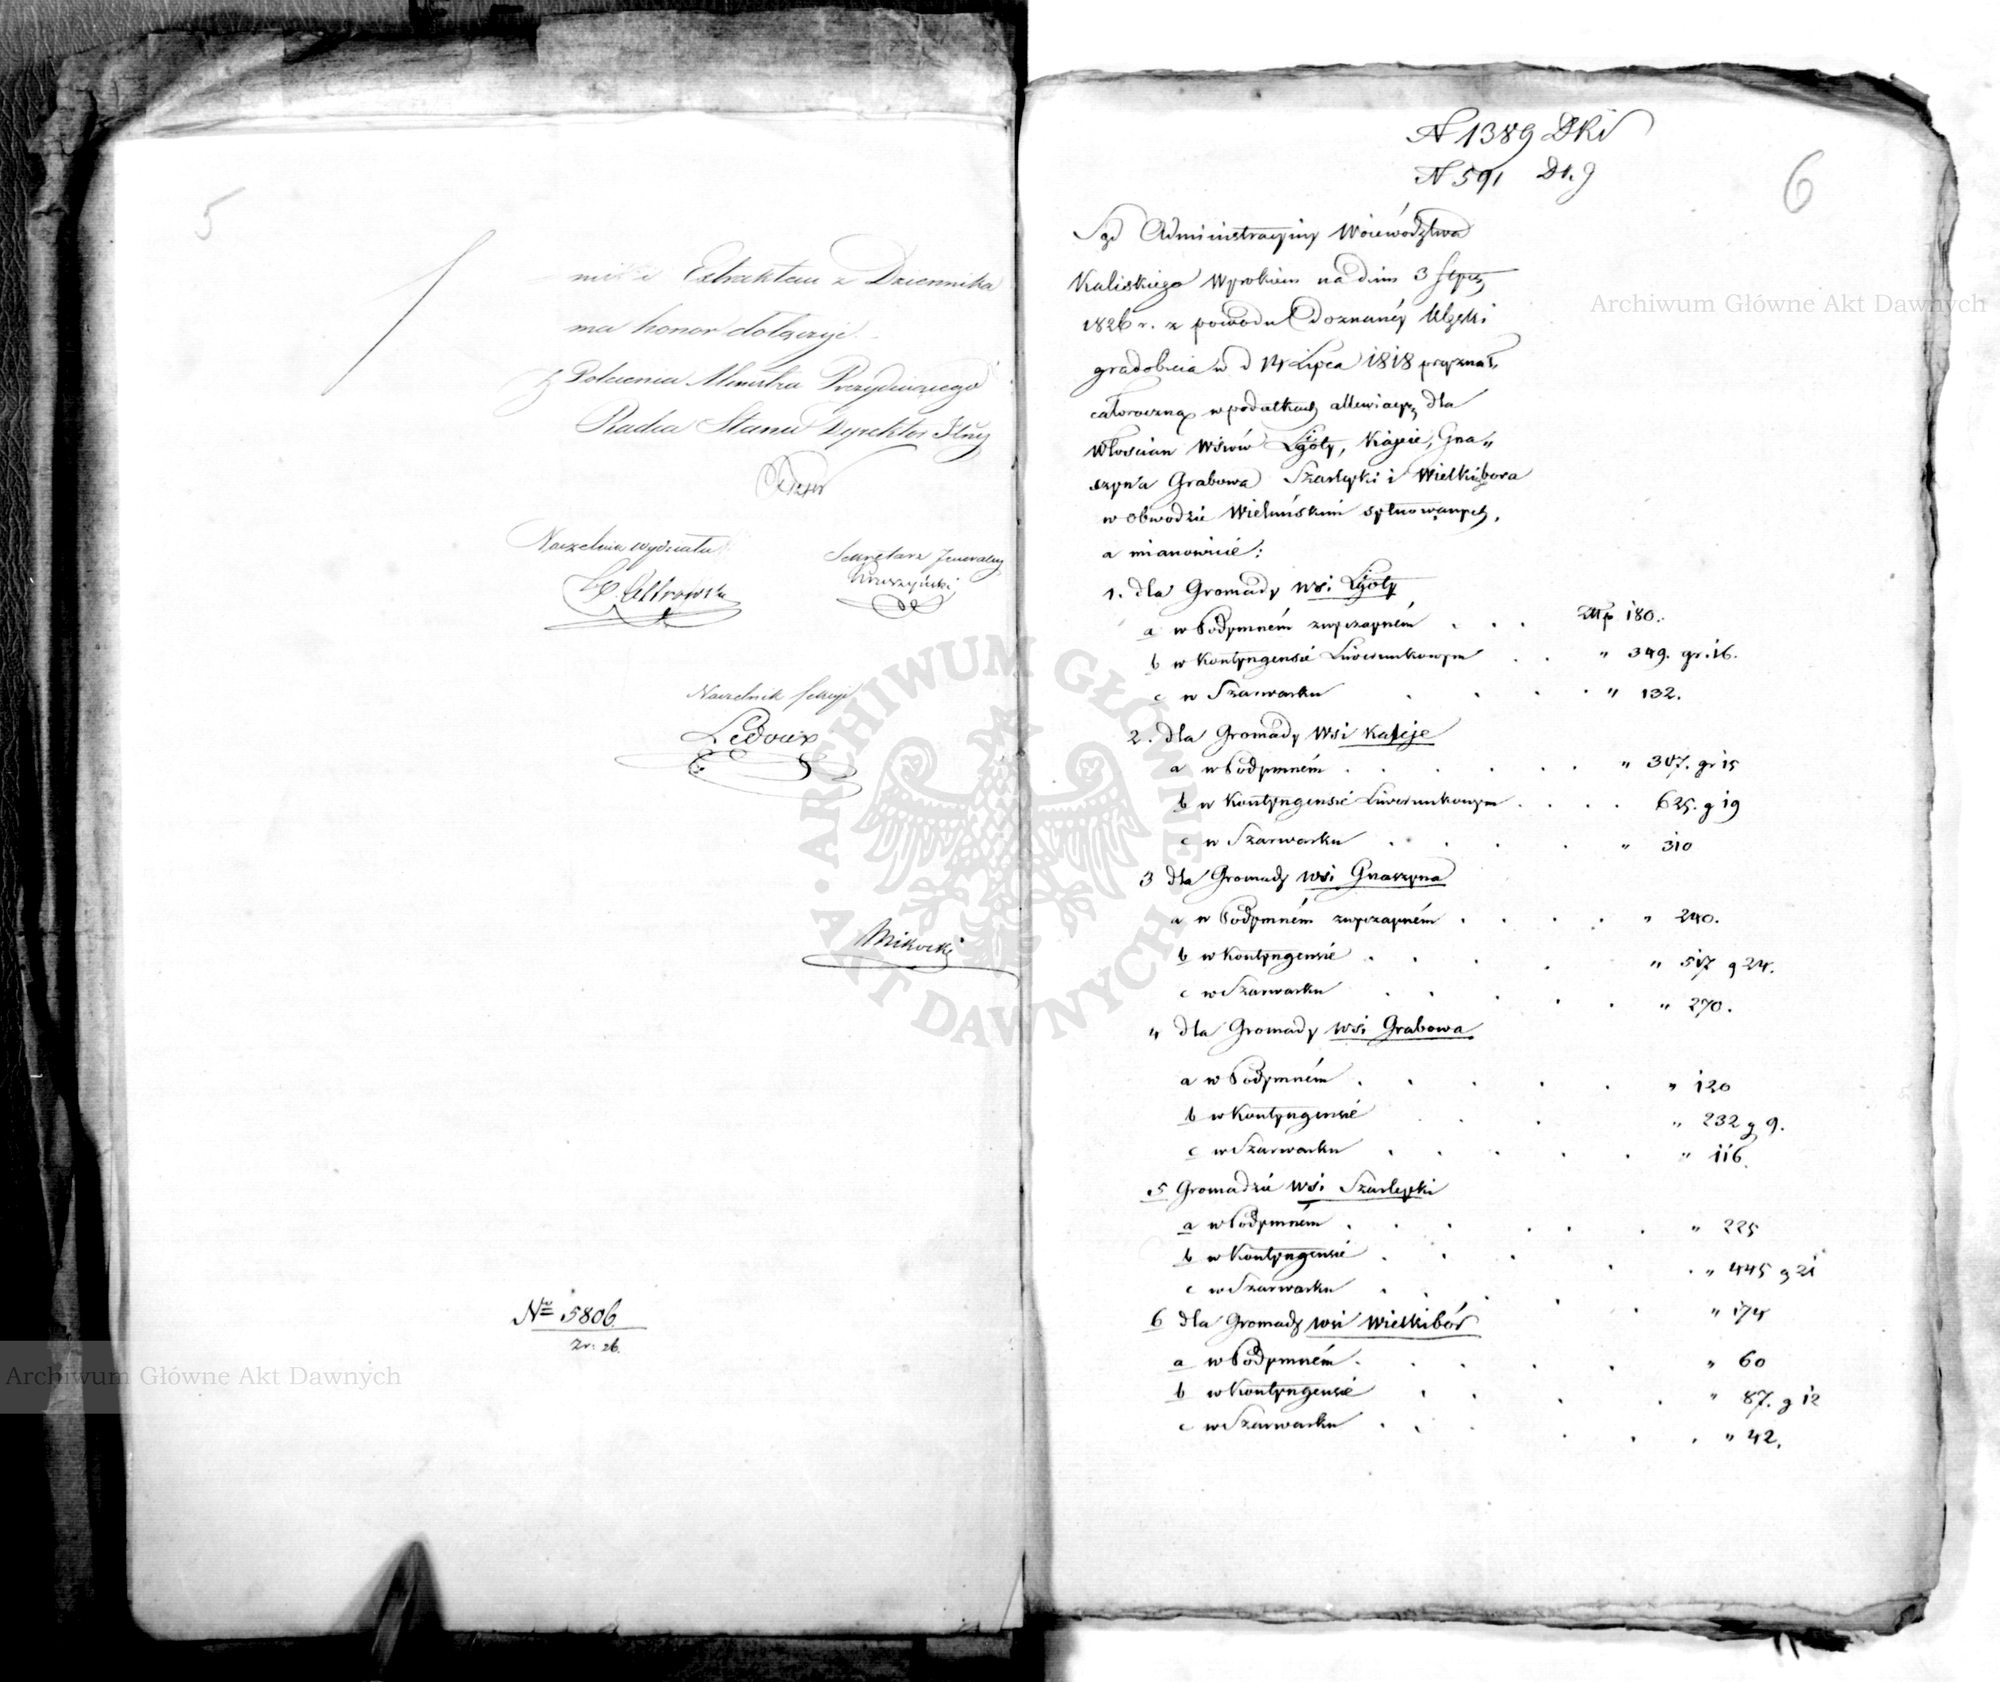 5
Extraktem z Dziennika
ma honor dołączyć.
z Polecenia Ministra Prezydującego
Radca Stanu Dyrektor Jlny
Naczelnik wydziału
Sekretarz Jeneralny
Kruszyński
Naczelnik sekcyi
Ledoux
Mikocki
Nro 5806.
26.
N 1389 DKi
N 591 D1. g
6
Sąd Administracyiny Woiewództwa
Kaliskiego Wyrokiem na dniu 3
1826 r. z powodu Doznanéy klęski
gradobicia w d 14 Lipca 1818 przyznał
całoroczną w podatkach allewiacyą dla
Włościan Wsiów Lgoty, Kápie, Gna„
szyna Grabowa Szarleyki i Wielkibora
w obwodzie Wieluńskim sytuowanych,
a mianowicie:
1. dla Gromady wsi Lgoty
a w Podymném zwyczayném . . . Złp 180.
b w Kontyngensie Liwerunkowym . . „ 349. gr. 16.
c w Szarwarku . . . . „ 132.
2. dla Gromady Wsi Kapieje
a w Podymném . . . . . „ 307. gr 15
b w Kontyngensie Liwerunkowym . . . . 625. g 19
c w Szarwarku . . . . „ 310
3 dla Gromady wsi Gnaszyna
a w Podymném zwyczayném . . . . „ 240.
b w Kontyngensie . . . . „ 517 g 24.
c w Szarwarku . . . . . „ 270.
4 dla Gromady wsi Grabowa
a w Podymném . . . . . „ 120
b w Kontyngensie . . . „ 232 g 9.
c w Szarwarku . . . . . „ 116.
5 Gromadzie wsi Szarleyki
a w Podymném . . . . . . „ 225
b w Kontyngensie . . . . . „ 445 g 21
c w Szarwarku . . . . . „ 174
6 dla Gromady wsi Wielkibór
a w Podymném . . . . . „ 60
b w Kontyngensie . . . . „ 87. g 12
c w Szarwarku . . . . . „ 42.
Archiwum Główne Akt Dawnych
Archiwum Główne Akt Dawnych
ARCHIWUM GŁÓWNE AKT DAWNYCH